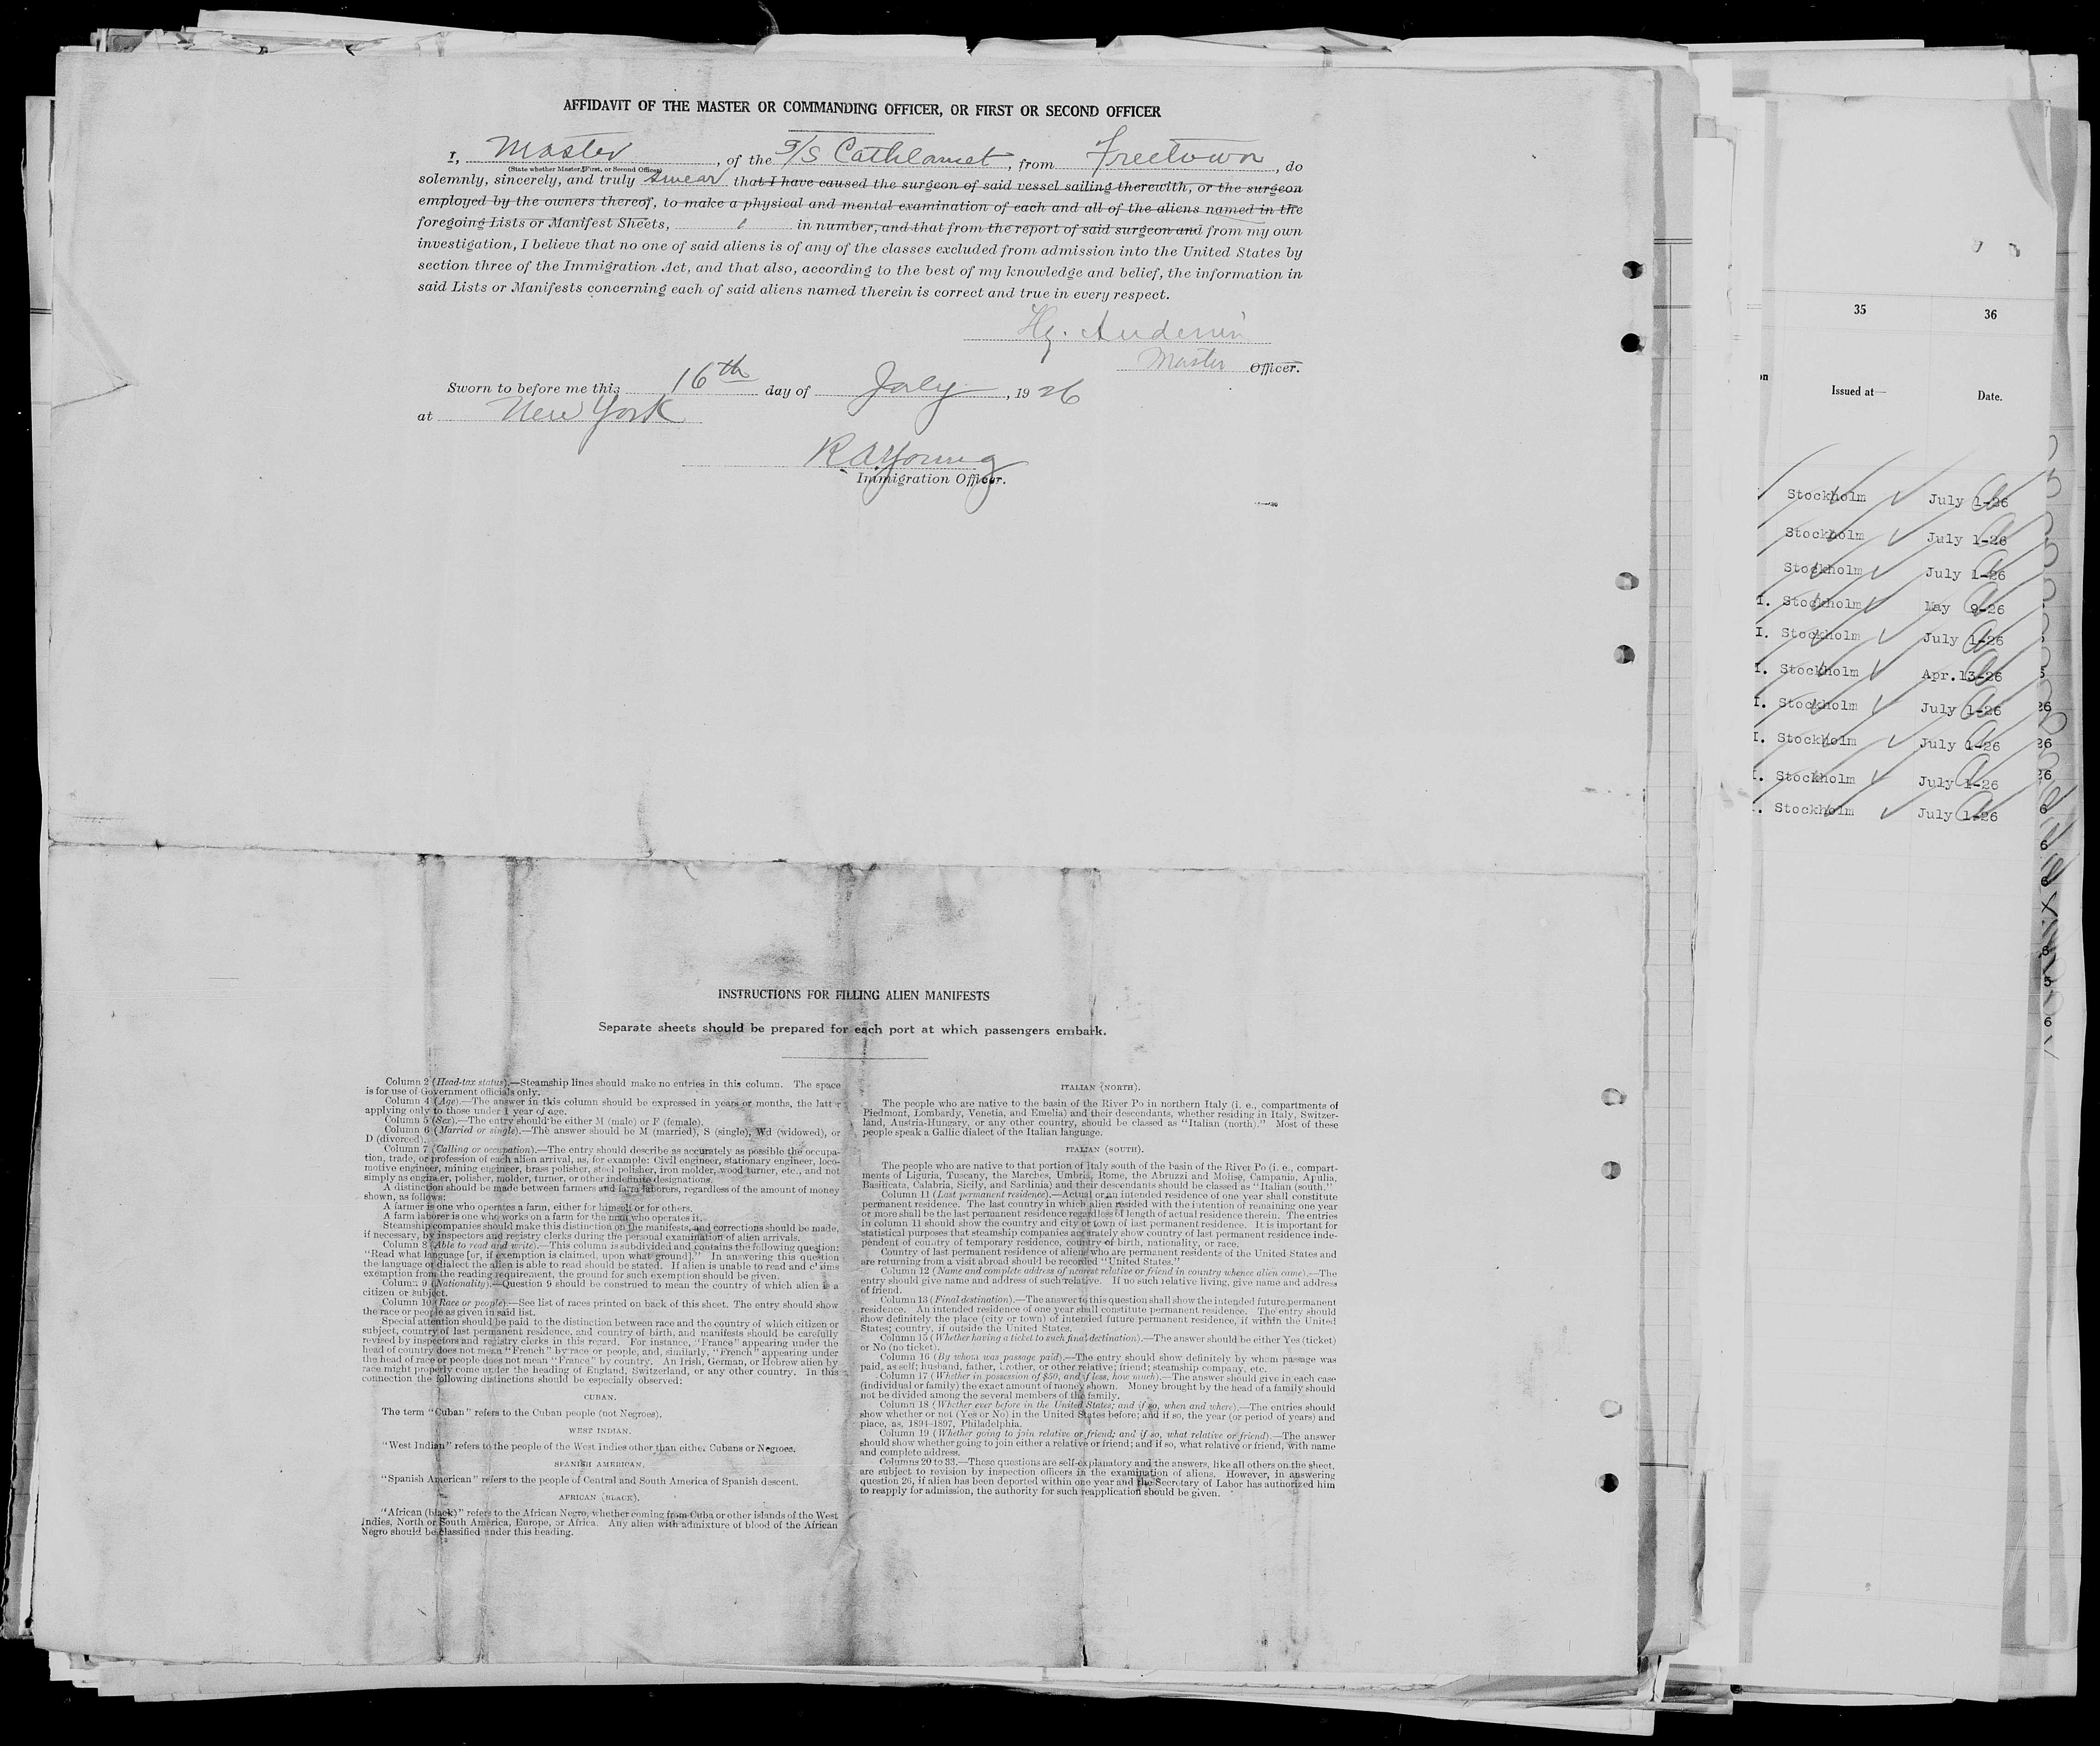 AFFIDAVIT OF THE MASTER OR COMMANDING OFFICER, OR FIRST OR SECOND OFFICER
I, Master, of the S/S Cathlamet, from Freetown, do
(State whether Master, First, or Second Officer)
solemnly, sincerely, and truly swear that I have caused the surgeon of said vessel sailing therewith, or the surgeon
employed by the owners thereof, to make a physical and mental examination of each and all of the aliens named in the
foregoing Lists or Manifest Sheets, 1 in number, and that from the report of said surgeon and from my own
investigation, I believe that no one of said aliens is of any of the classes excluded from admission into the United States by
section three of the Immigration Act, and that also, according to the best of my knowledge and belief, the information in
said Lists or Manifests concerning each of said aliens named therein is correct and true in every respect.
Master Officer.
Sworn to before me this 16th day of July, 1926
at New York
R A Young
Immigration Officer.
INSTRUCTIONS FOR FILLING ALIEN MANIFESTS
Separate sheets should be prepared for each port at which passengers embark.
Column 2 (Head-tax status).—Steamship lines should make no entries in this column. The space
is for use of Government officials only.
Column 4 (Age).—The answer in this column should be expressed in years or months, the latter
applying only to those under 1 year of age.
Column 5 (Sex).—The entry should be either M (male) or F (female).
Column 6 (Married or single).—The answer should be M (married), S (single), Wd (widowed), or
D (divorced).
Column 7 (Calling or occupation).—The entry should describe as accurately as possible the occupa-
tion, trade, or profession of each alien arrival, as, for example: Civil engineer, stationary engineer, loco-
motive engineer, mining engineer, brass polisher, steel polisher, iron molder, wood turner, etc., and not
simply as engineer, polisher, molder, turner, or other indefinite designations.
A distinction should be made between farmers and farm laborers, regardless of the amount of money
shown, as follows:
A farmer is one who operates a farm, either for himself or for others.
A farm laborer is one who works on a farm for the man who operates it.
Steamship companies should make this distinction on the manifests, and corrections should be made,
if necessary, by inspectors and registry clerks during the personal examination of alien arrivals.
Column 8 (Able to read and write).—This column is subdivided and contains the following question:
"Read what language [or, if exemption is claimed, upon what ground]." In answering this question
the language or dialect the alien is able to read should be stated. If alien is unable to read and claims
exemption from the reading requirement, the ground for such exemption should be given.
Column 9 (Nationality).—Question 9 should be construed to mean the country of which alien is a
citizen or subject.
Column 10 (Race or people).—See list of races printed on back of this sheet. The entry should show
the race or people as given in said list.
Special attention should be paid to the distinction between race and the country of which citizen or
subject, country of last permanent residence, and country of birth, and manifests should be carefully
revised by inspectors and registry clerks in this regard. For instance, "France" appearing under the
head of country does not mean "French" by race or people, and, similarly, "French" appearing under
the head of race or people does not mean "France" by country. An Irish, German, or Hebrew alien by
race might properly come under the heading of England, Switzerland, or any other country. In this
connection the following distinctions should be especially observed:
CUBAN.
The term "Cuban" refers to the Cuban people (not Negroes).
WEST INDIAN.
"West Indian" refers to the people of the West Indies other than either Cubans or Negroes.
SPANISH AMERICAN.
"Spanish American" refers to the people of Central and South America of Spanish descent.
AFRICAN (BLACK).
"African (black)" refers to the African Negro, whether coming from Cuba or other islands of the West
Indies, North or South America, Europe, or Africa. Any alien with admixture of blood of the African
Negro should be classified under this heading.
ITALIAN (NORTH).
The people who are native to the basin of the River Po in northern Italy (i. e., compartments of
Piedmont, Lombardy, Venetia, and Emelia) and their descendants, whether residing in Italy, Switzer-
land, Austria-Hungary, or any other country, should be classed as "Italian (north)." Most of these
people speak a Gallic dialect of the Italian language.
ITALIAN (SOUTH).
The people who are native to that portion of Italy south of the basin of the River Po (i. e., compart-
ments of Liguria, Tuscany, the Marches, Umbria, Rome, the Abruzzi and Molise, Campania, Apulia,
Basilicata, Calabria, Sicily, and Sardinia) and their descendants should be classed as "Italian (south."
Column 11 (Last permanent residence).—Actual or an intended residence of one year shall constitute
permanent residence. The last country in which alien resided with the intention of remaining one year
or more shall be the last permanent residence regardless of length of actual residence therein. The entries
in column 11 should show the country and city or town of last permanent residence. It is important for
statistical purposes that steamship companies accurately show country of last permanent residence inde-
pendent of country of temporary residence, country of birth, nationality, or race.
Country of last permanent residence of aliens who are permanent residents of the United States and
are returning from a visit abroad should be recorded "United States."
Column 12 (Name and complete address of nearest relative or friend in country whence alien came).—The
entry should give name and address of such relative. If no such relative living, give name and address
of friend.
Column 13 (Final destination).—The answer to this question shall show the intended future permanent
residence. An intended residence of one year shall constitute permanent residence. The entry should
show definitely the place (city or town) of intended future permanent residence, if within the United
States; country, if outside the United States.
Column 15 (Whether having a ticket to such final destination).—The answer should be either Yes (ticket)
or No (no ticket).
Column 16 (By whom was passage paid).—The entry should show definitely by whom passage was
paid, as self; husband, father, brother, or other relative; friend; steamship company, etc.
Column 17 (Whether in possession of $50, and if less, how much).—The answer should give in each case
(individual or family) the exact amount of money shown. Money brought by the head of a family should
not be divided among the several members of the family.
Column 18 (Whether ever before in the United States; and if so, when and where).—The entries should
show whether or not (Yes or No) in the United States before; and if so, the year (or period of years) and
place, as, 1894-1897, Philadelphia.
Column 19 (Whether going to join relative or friend; and if so, what relative or friend).—The answer
should show whether going to join either a relative or friend; and if so, what relative or friend, with name
and complete address.
Columns 20 to 33.—These questions are self-explanatory and the answers, like all others on the sheet,
are subject to revision by inspection officers in the examination of aliens. However, in answering
question 26, if alien has been deported within one year and the Secretary of Labor has authorized him
to reapply for admission, the authority for such reapplication should be given.
35 36
Issued at— Date.
Stockholm July 1-26
Stockholm July 1-26
Stockholm July 1-26
I. Stockholm May 9-26
I. Stockholm July 1-26
I. Stockholm Apr.13-26
I. Stockholm July 1-26
I. Stockholm July 1-26
I. Stockholm July 1-26
Stockholm July 1-26